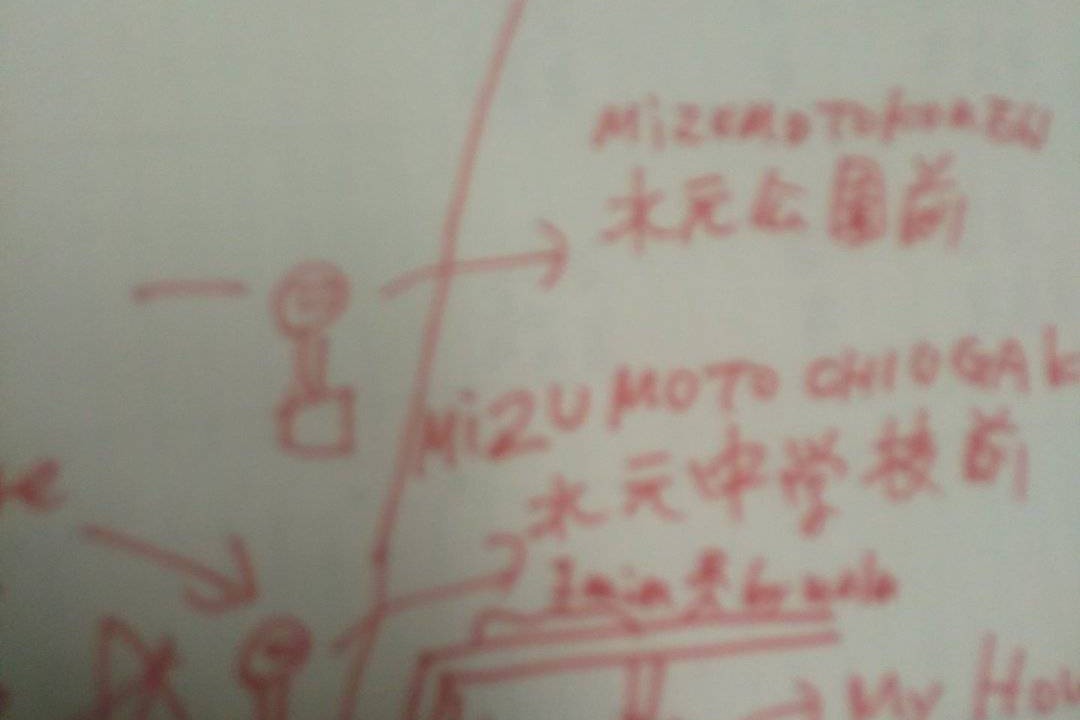 水元公園前
MIZUMOTO CHIOGAK
水元中学校前
1 min by walk
My Hou